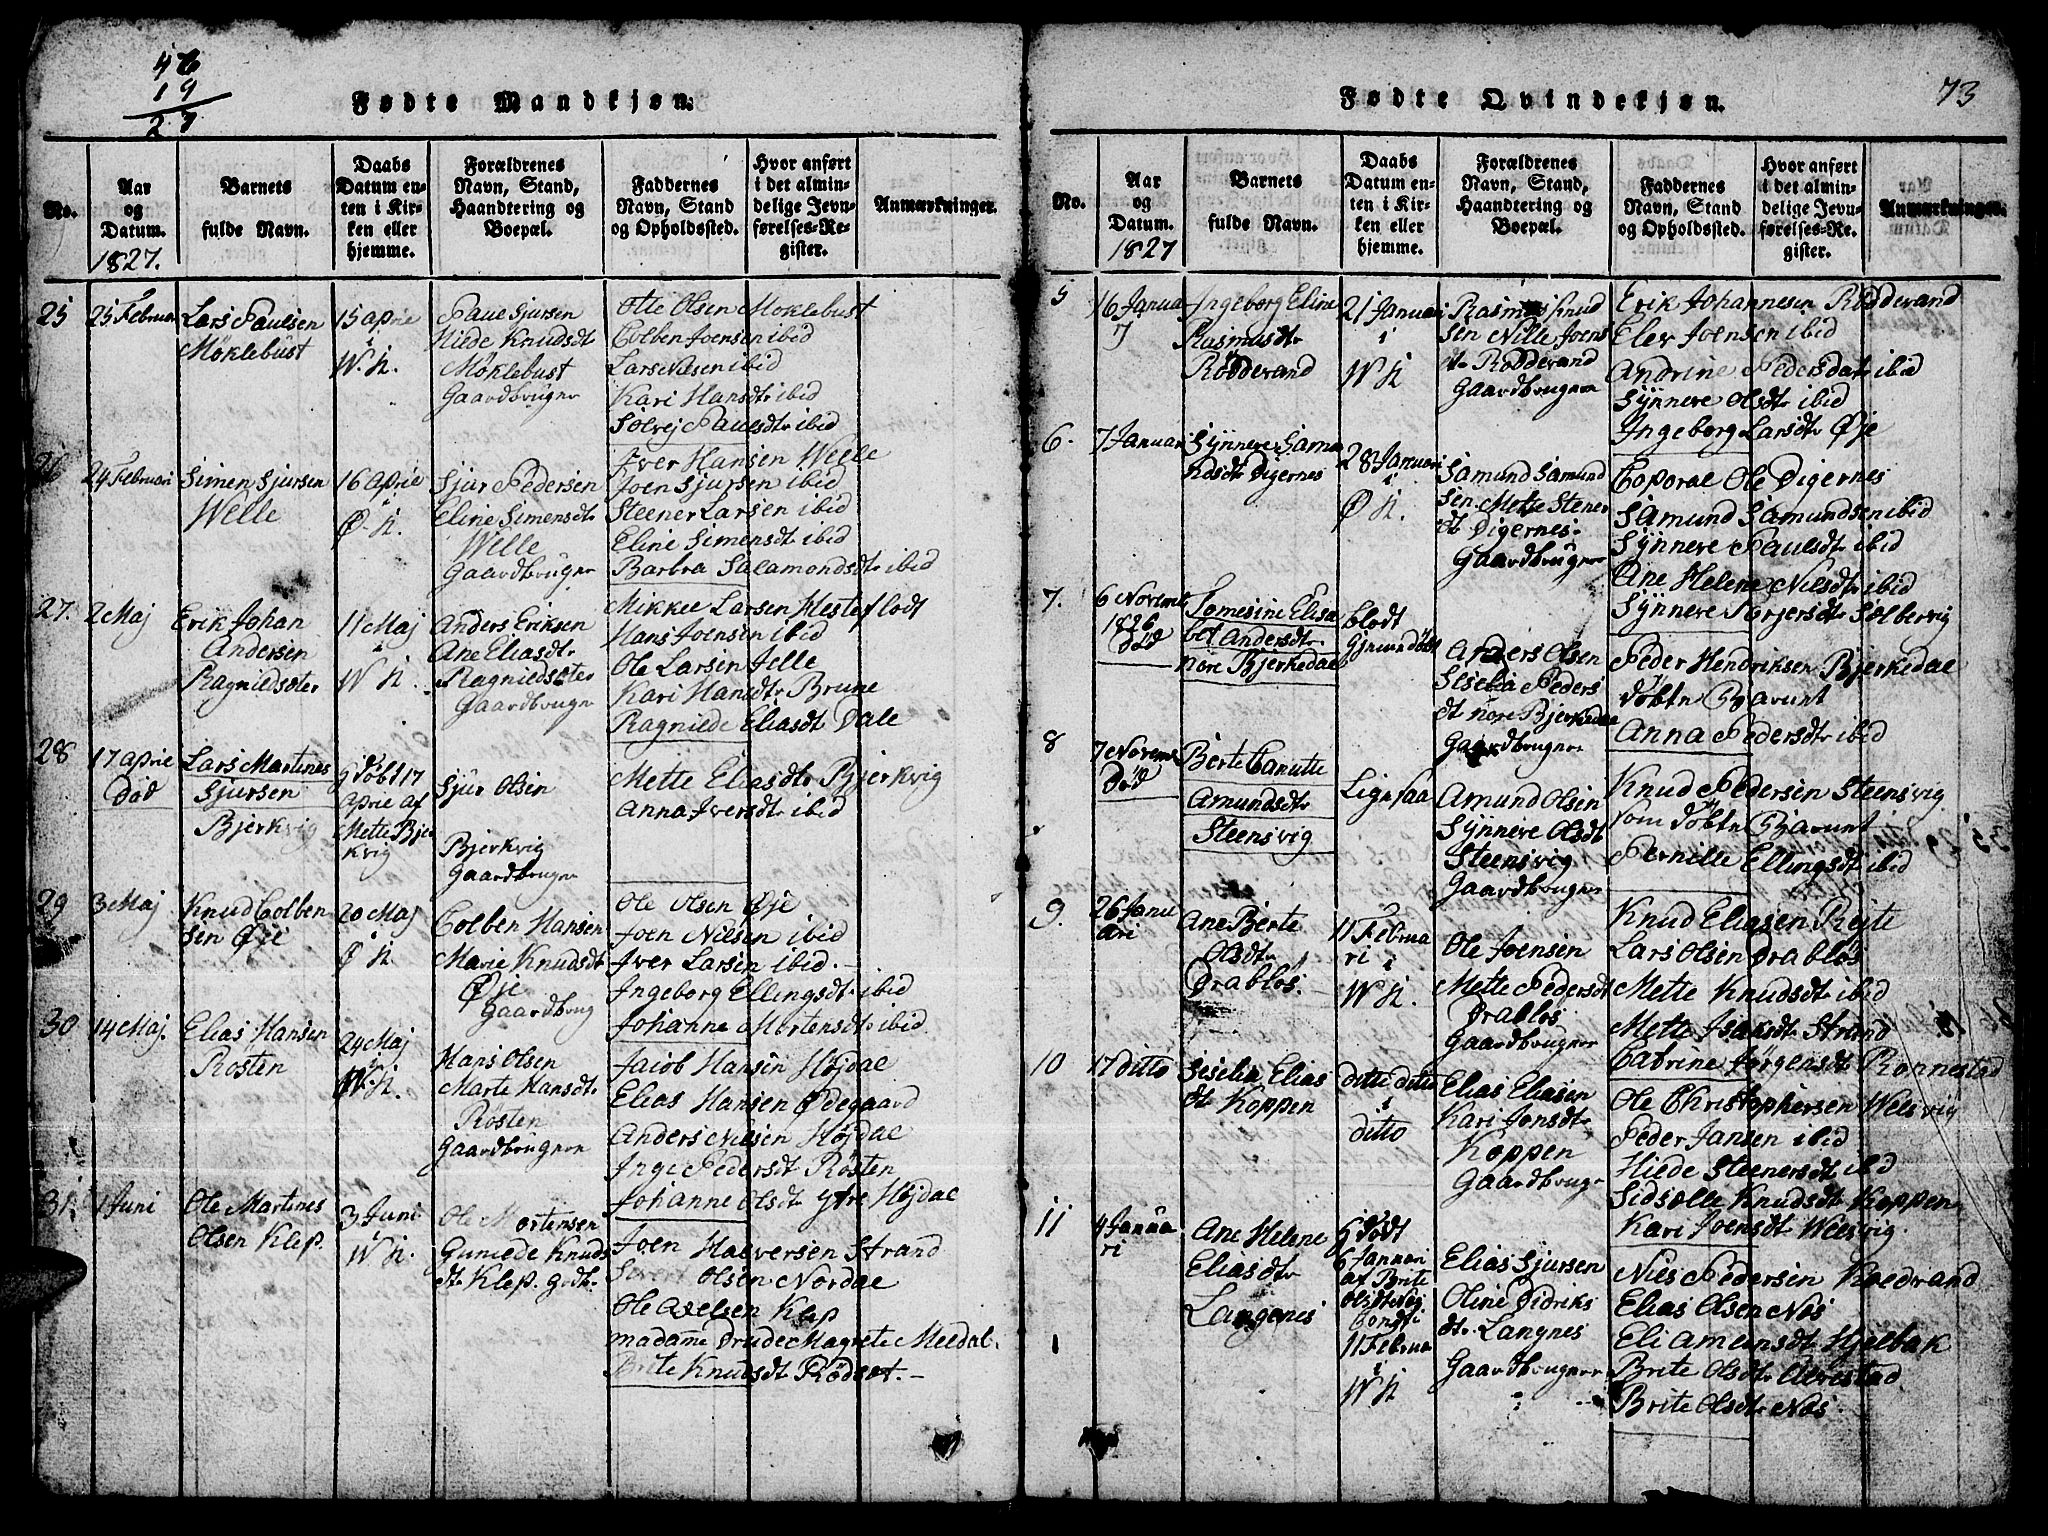 46
19
27
Fødte Mandkjøn.
No.
Aar og Datum.
1827.
Barnets fulde Navn.
Daabs Datum enten i Kirken eller hjemme.
Forældrenes Navn, Stand, Haandtering og Boepæl.
Faddernes Navn, Stand og Opholdssted.
Hvor anført i det almindelige Jevnførelses-Register.
Anmærkninger.
25
25 Februar
Lars Paulsen
Møklebust
15 april
i
W. K.
Paul Sjursen
Hilde Knudsdt
Møklebust
Gaardbruger
Ole Olsen Moklebust
Colben Joensen ibid
Lars Nilsen ibid
Kari Hansdt. ibid
Solvej Paulsdt. ibid
26
24 Februari
Simen Sjursen
Welle
16 april
i
Ø. K.
Sjur Pedersen
Eline Simensdt.
Welle
Gaardbruger
Iver Hansen Welle
Joen Sjursen ibid
Steener Larsen ibid
Eline Simensdt. ibid
Barbra Salamondsdt. ibid
27.
2 Maj
Erik Johan
Andersen
Ragnildsæter
11 Maj
i
W K.
Anders Eriksen
Ane Eliasdt.
Ragnildsæter
Gaardbruger
Mikkel Larsen Hesteflodt
Hans Joensen ibid
Ole Larsen Jelle
Kari Hansdt. Brune
Ragnilde Eliasdt. Dale
28
17 april
død
Lars Martines
Sjursen
Bjerkvig
Gjdøbt 17
April af
Mette Bjer
kvig
Sjur Olsen
Bjerkvig
Gaardbruger
Mette Eliasdt. Bjerkvig
Anna Iversdt. ibid
29
3 Maj
Knud Colben
sen Øje
20 Maj
i
Ø K.
Colben Hansen
Marie Knudsdt
Øje
Gaardbrug
Ole Olsen Øje
Joen Nilsen ibid
Iver Larsen ibid.
Ingeborg Ellingsdt. ibid
Johanne Mortensdt. ibid.
30
14 Maj.
Elias Hansen
Rosten
24 Maj
i
W. K.
Hans Olsen
Marte Hansdt.
Røsten
Gaardbrugere
Jacob Hansen Højdal
Elias Hansen Ødegaard
Anders Nilsen Højdal
Inge Pedersdt. Røsten
Johanne Olsdt. ytre Højdal
31.
1 Juni
Ole Martines
Olsen Klep.
3 Juni
i
W K.
Ole Mortensen
Gunilde Knuds
dt. Klep. Gdb.
Joen Halversen Strand
Olsen Nordal
Ole Axelsen Klep
madame Drude Magrete Meldal.
Brite Knudsdt. Rødset.
Fødte Qvindekjøn.
73
No.
Aar og Datum.
1827
Barnets fulde Navn.
Daabs Datum enten i Kirken eller hjemme.
Forældrenes Navn, Stand, Haandtering og Boepæl.
Faddernes Navn, Stand og Opholdssted.
Hvor anført i det almindelige Jevnførelses-Register.
Anmærkninger.
5
16 Janua
Ingeborg Eline
Rasmusdt.
Rødderand
21 Januari
i
W K
Rasmus Knud
sen Nille Joens
dt. Rødderand
Gaardbrugere
Erik Johannesen Rødderand
Elev Joensen ibid
Andrine Pedersdat. ibid
Synneve Olsdt. ibid
Ingeborg Larsdt. Øje
6.
7 Januar
Synneve Samu
ndsdt. Digernes
28 Januari
i
Ø K.
Samund Samund
sen Mette Stener
dt. Digernes.
Gaardbruger
Coporal Ole Digernes
Samund Samundsen ibid
Synneve Paulsdt. ibid
Ane Helene Nilsdt. ibid
Synneve Torjersdt. Solbervig
7.
6 Novemb
1826
død
Tomesine Elisa
bet Andersdt.
nore Bjerkedal
blodt
Gjemmedøbt
Anders Olsen
Siselia Peders
dt. nore Bjerkedal
Gaardbrugere
Peder Hendriksen Bjerkedal
døbtn Barnet
Anna Pedersdt. ibid
8
7 Novemb
død
Berte Canutte
Amundsdt.
Steensvig
Ligesaa
Amund Olsen
Synneve Olsdt
Steensvig
Gaardbruger
Knud Pedersen Steensvig
som døbtn Barnet
Pernille Ellingsdt ibid
9.
26 Janu
ari
Ane Berte
Olsdt.
Drabløs.
11 Februa
ri i
W K.
Ole Joensen
Mette Pedersdt
Drabløs
Gaardbruger
Knud Eliasen Rejte
Lars Olsen Drabløs
Mette Knudsdt. ibid
Mette Isaksdt. Strand
Catrine Jørgensdt. Ronnestad
10
17 Ditto
Siselia Elias
dt. Koppen
Ditto Ditto
i
ditto
Elias Eliasen
Kari Jonsdt.
Koppen
Gaardbruger
Ole Christophersen Welsvig
Peder Jansen ibid
Hilde Steenersdt. ibid
Sidsælle Knudsdt. Koppen
Kari Joensdt. Welsvig.
11
4 Janua
ri
Ane Helene
Eliasdt.
Langenes
Gjdøbt
6 Januari
af Brite
Olsdt Nøs
11 Februa
i
W K
Elias Sjursen
Oline Didriks
dt. Langnes
Gaardbruger
Nils Pedersen Koldrand
Elias Olsen Nøs
Eli Amundsdt. Hjelbak
Brite Olsdt. Alvestad
Brite Olsdt. Nøs.
1